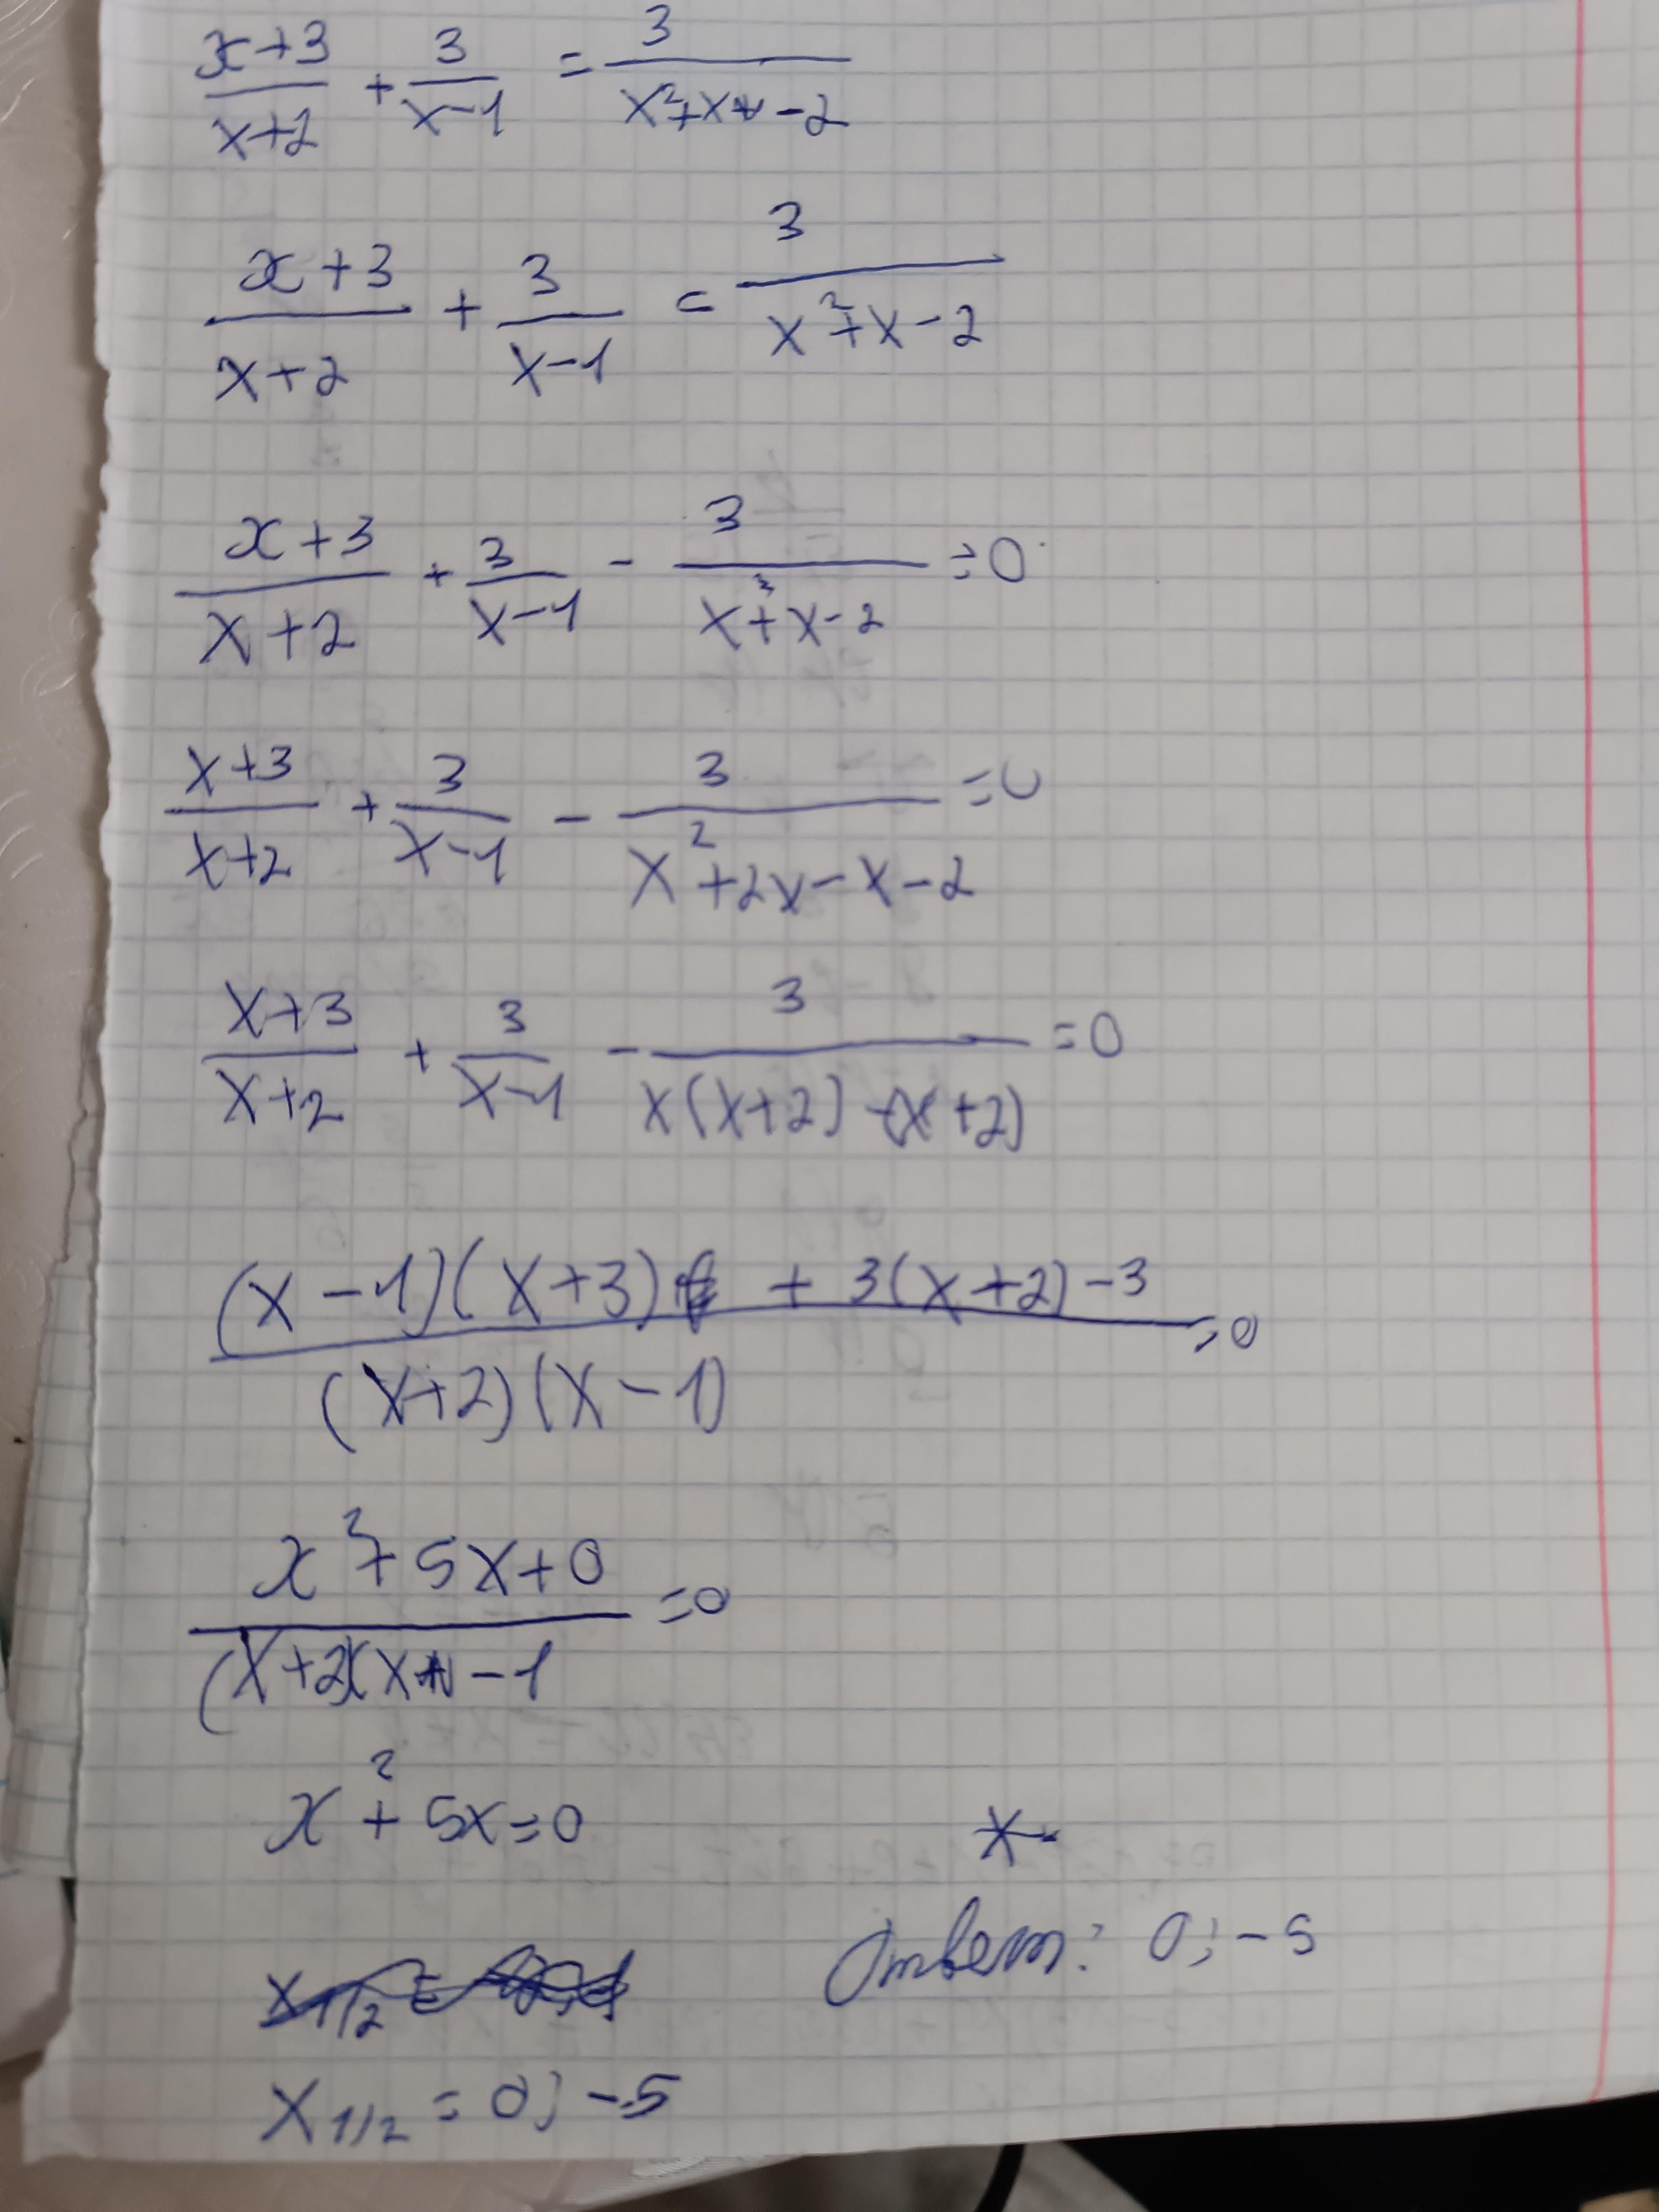 (x+3)/(x+2) + 3/(x-1) = 3/(x²+x-2)
(x+3)/(x+2) + 3/(x-1) = 3/(x²+x-2)
(x+3)/(x+2) + 3/(x-1) - 3/(x²+x-2) = 0
(x+3)/(x+2) + 3/(x-1) - 3/(x²+2x-x-2) = 0
(x+3)/(x+2) + 3/(x-1) - 3/(x(x+2)-(x+2)) = 0
((x-1)(x+3) + 3(x+2)-3)/((x+2)(x-1)) = 0
(x²+5x+0)/((x+2)(x-1) = 0
x²+5x=0
x
Ответ: 0; -5
x1/2 = 0; -5